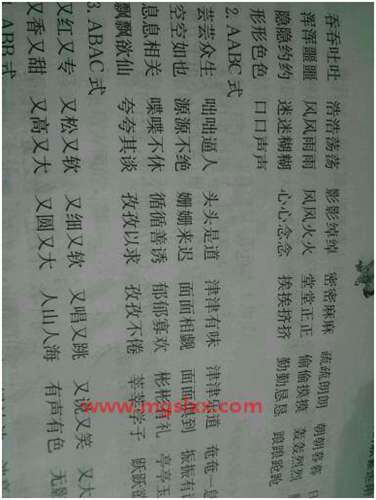 吞吞吐吐 浩浩荡荡 影影绰绰 密密麻麻 疏疏朗朗 朝朝暮暮
浑浑噩噩 风风雨雨 风风火火 堂堂正正 偷偷摸摸 轰轰烈烈
隐隐约约 迷迷糊糊 心心念念 挨挨挤挤 勤勤恳恳 踉踉跄跄
形形色色 口口声声
2. AABC 式
芸芸众生 咄咄逼人 头头是道 津津有味 津津乐道 奄奄一
空空如也 源源不绝 姗姗来迟 面面相觑 面面俱到 振振有
息息相关 喋喋不休 循循善诱 郁郁寡欢 彬彬有礼 亭亭玉
飘飘欲仙 夸夸其谈 孜孜以求 孜孜不倦 莘莘学子 跃跃欲
3. ABAC 式
又红又专 又松又软 又细又软 又唱又跳 又说又笑 又大
又香又甜 又高又大 又圆又大 人山人海 有声有色 无影
ABB 式
www.mgshx.com